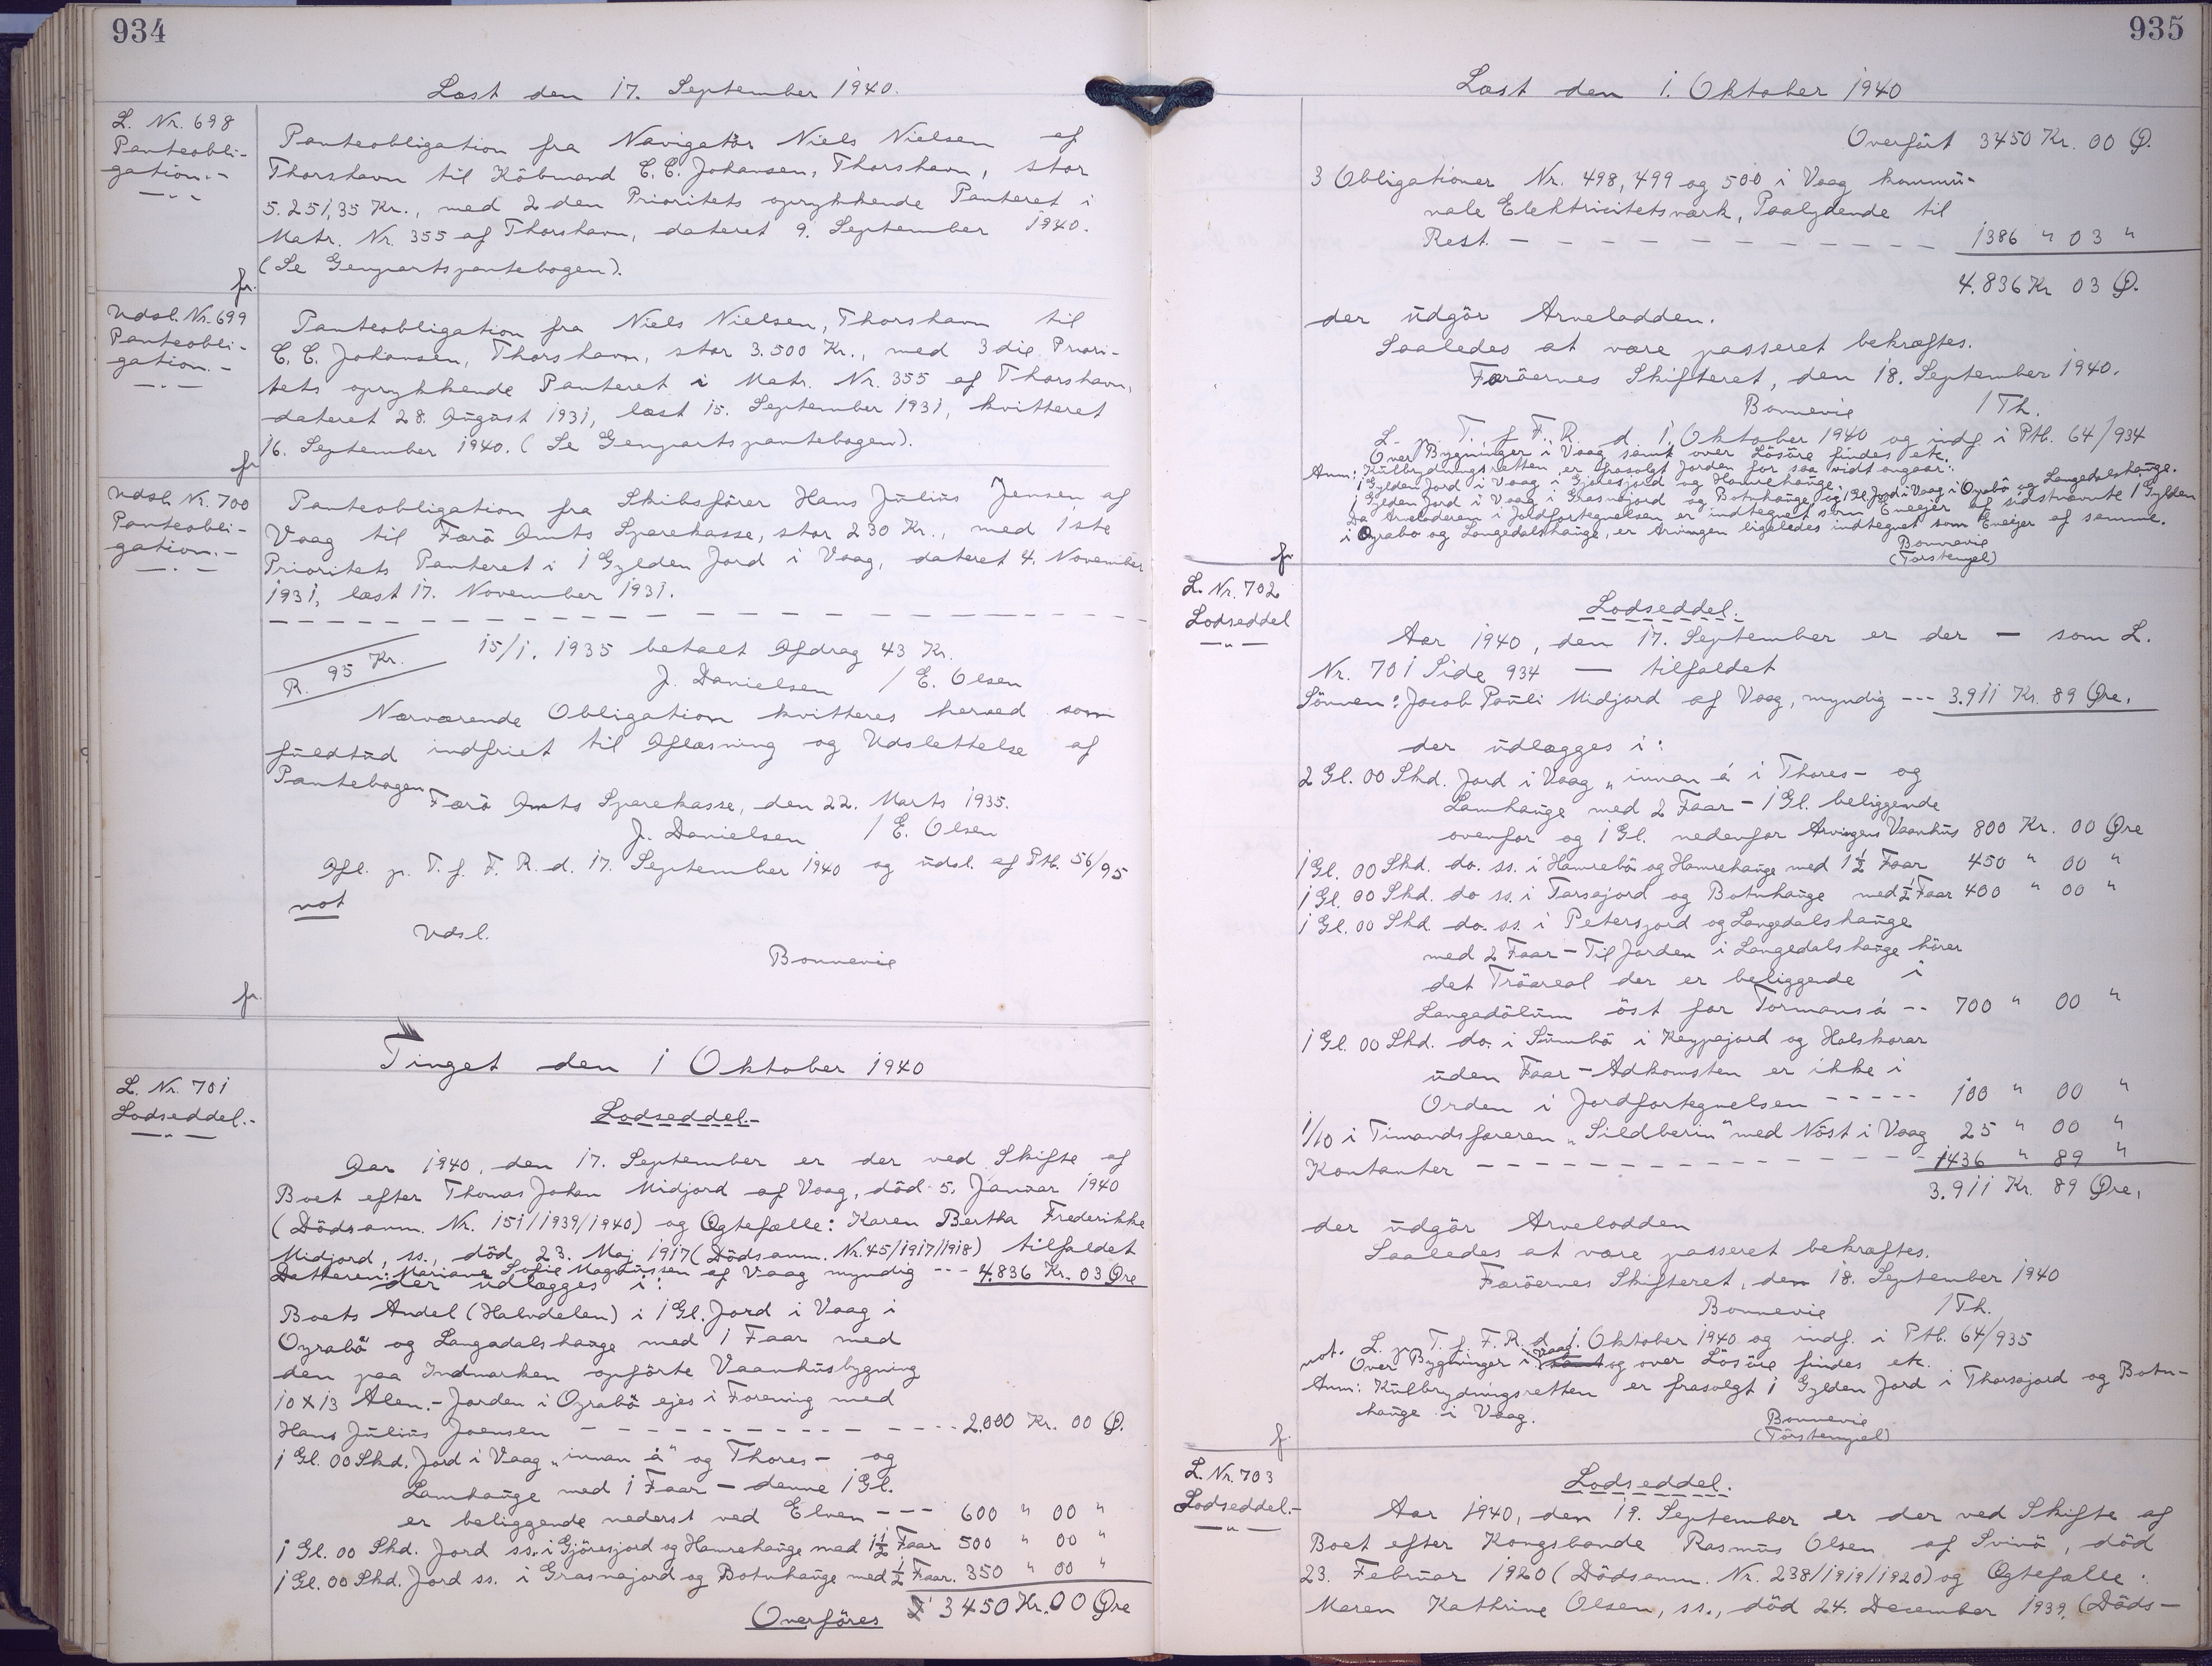 934
Læst den 17. September 1940.
L. Nr. 698
Panteobli-
gation.-
Panteobligation fra Navigatör Niels Nielsen af
Thorshavn til Köbmand C.C. Johansen, Thorshavn, stor
5.251,35 Kr., med 2den Prioritets oprykkende Panteret i
Matr. Nr. 355 af Thorshavn, dateret 9. September 1940.
(Se Genpartspantebogen).
fr.
Udsl. Nr. 699
Panteobli-
gation.-
Panteobligation fra Niels Nielsen, Thorshavn til
C.C. Johansen, Thorshavn, stor 3.500 Kr., med 3die Priori-
tets oprykkende Panteret i Matr. Nr. 355 af Thorshavn,
dateret 28. August 1931, læst 15. September 1931, kvitteret
16. September 1940. (Se Genpartspantebogen).
fr
Udsl. Nr. 700
Panteobli-
gation.-
Panteobligation fra Skibsförer Hans Julius Jensen af
Vaag til Færö Amts Sparekasse, stor 230 Kr., med 1ste
Prioritets Panteret i 1 Gylden Jord i Vaag, dateret 4. November
1931, læst 17. November 1931.
R. 95 Kr.
15/1. 1935 betalt Afdrag 43 Kr.
J. Danielsen / E. Olsen
Nærværende Obligation kvitteres herved som
fuldtud indfriet til Aflæsning og Udslettelse af
Pantebogen
Færö Amts Sparekasse, den 22. Marts 1935.
J. Danielsen / E. Olsen
Afl. p. T. f. F. R. d. 17. September 1940 og udsl. af Ptb. 56/95
not
Udsl.
Bonnevie
fr.
Tinget den 1 Oktober 1940
L. Nr. 701
Lodseddel.-
Lodseddel.-
Aar 1940, den 17. September er der ved Skifte af
Boet efter Thomas Johan Midjord af Vaag, död 5. Januar 1940
(Dödsanm. Nr. 151/1939/1940) og Ægtefælle: Karen Bertha Frederikke
Midjord, ss., död 23. Maj 1917 (Dödsanm. Nr. 45/1917/1918) tilfaldet
Datteren: Mariane Sofie Magnussen af Vaag myndig --- 4.836 Kr. 03 Øre
der udlægges i:
Boets Andel (Halvdelen) i 1 Gl. Jord i Vaag i
Oyrabö og Langadalshauge med 1 Faar med
den paa Indmarken opförte Vaanhusbygning
10 x 13 Alen.- Jorden i Oyrabö ejes i Forening med
Hans Julius Joensen ---- 2.000 Kr. 00 Ø.
1 Gl. 00 Skd. Jord i Vaag „innan á" og Thores- og
Lamhauge med 1 Faar - denne 1 Gl.
er beliggende nederst ved Elven --- 600 " 00 "
1 Gl. 00 Skd. Jord ss. i Gjöresjord og Hamrehauge med 1½ Faar 500 " 00 "
1 Gl. 00 Skd. Jord ss. i Grasnajord og Botnhauge med ½ Faar. 350 " 00 "
Overföres 3450 Kr. 00 Øre
935
Læst den 1. Oktober 1940
Overfört 3450 Kr. 00 Ø.
3 Obligationer Nr. 498, 499 og 500 i Vaag kommu-
nale Elektricitetsværk, Paalydende til
Rest - - - 1386 " 03 "
4.836 Kr 03 Ø.
der udgör Arvelodden.
Saaledes at være passeret bekræftes.
Færöernes Skifteret, den 18. September 1940.
Bonnevie /Th.
L. p. T. f. F. R. d. 1. Oktober 1940 og indf. i Ptb. 64/934
Over Bygninger i Vaag samt over Lösöre findes etc.
Anm: Kulbrydningsretten er frasolgt Jorden for saa vidt angaar:
1 Gylden Jord i Vaag i Gjöresjord og Hamrehauge.
1 Gylden Jord i Vaag i Grasnajord og Botnhauge og 1 Gl. Jord i Vaag i Oyrabö og Langedalshauge.
Da Arveladeren i Jordfortegnelsen er indtegnet som Eneejer af sidstnævnte 1 Gylden
i Oyrabö og Langedalshauge, er Arvingen ligeledes indtegnet som Eneejer af samme.
Bonnevie
(Torstempel)
fr
L. Nr. 702
Lodseddel
Lodseddel.
Aar 1940, den 17. September er der - som L.
Nr. 701 Side 934 - tilfaldet
Sönnen: Jacob Pauli Midjord af Vaag, myndig --- 3.911 Kr. 89 Øre.
der udlægges i:
2 Gl. 00 Skd. Jord i Vaag „innan á i Thores- og
Lamhauge med 2 Faar - 1 Gl. beliggende
ovenfor og 1 Gl. nedenfor Arvingens Vaanhus 800 Kr. 00 Øre
1 Gl. 00 Skd. do. ss. i Hamrebö og Hamrehauge med 1½ Faar 450 " 00 "
1 Gl. 00 Skd. do ss. i Tarsajord og Botnhauge med ½ Faar 400 " 00 "
1 Gl. 00 Skd do. ss. i Petersjord og Langedalshauge
med 2 Faar - Til Jorden i Langedalshauge hörer
det Tröareal der er beliggende i
Langadölum öst for Tormansá -- 700 " 00 "
1 Gl. 00 Skd. do. i Sumbö i Keypajord og Halskorar
uden Faar - Adkomsten er ikke i
Orden i Jordfortegnelsen ----- 100 " 00 "
1/10 i Timandsfareren „Sildberin" med Nöst i Vaag 25 " 00 "
Kontanter - - - 1436 " 89 "
3.911 Kr. 89 Øre.
der udgör Arvelodden
Saaledes at være passeret bekræftes.
Færöernes Skifteret, den 18. September 1940
Bonnevie /Th.
L. p. T. f. F. R. d. 1. Oktober 1940 og indf. i Ptb. 64/935
not. Over Bygninger i Vaag og over Lösöre findes etc.
Anm: Kulbrydningsretten er frasolgt 1 Gylden Jord i Thorsajord og Botn-
hauge i Vaag.
Bonnevie
(Torstempel)
f.
L. Nr. 703
Lodseddel.-
Lodseddel.
Aar 1940, den 19. September er der ved Skifte af
Boet efter Kongsbonde Rasmus Olsen af Svinö, död
23. Februar 1920 (Dödsanm. Nr. 238/1919/1920) og Ægtefælle:
Maren Kathrine Olsen, ss., död 24. December 1939. (Döds-